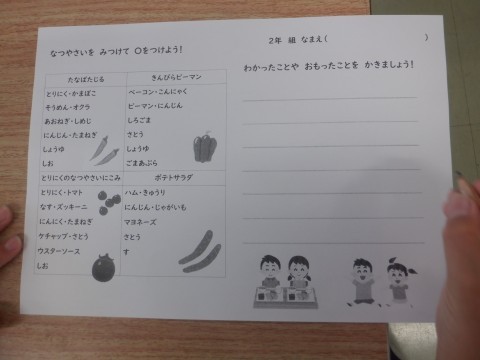 なつやさいを みつけて ○をつけよう!
たなばたじる
とりにく・かまぼこ
そうめん・オクラ
あおねぎ・しめじ
にんじん・たまねぎ
しょうゆ
しお
きんぴらピーマン
ベーコン・こんにゃく
ピーマン・にんじん
しろごま
さとう
しょうゆ
ごまあぶら
とりにくのなつやさいにこみ
とりにく・トマト
なす・ズッキーニ
にんにく・たまねぎ
ケチャップ・さとう
ウスターソース
しお
ポテトサラダ
ハム・きゅうり
にんじん・じゃがいも
マヨネーズ
さとう
す
2年 組 なまえ( )
わかったことや おもったことを かきましょう!